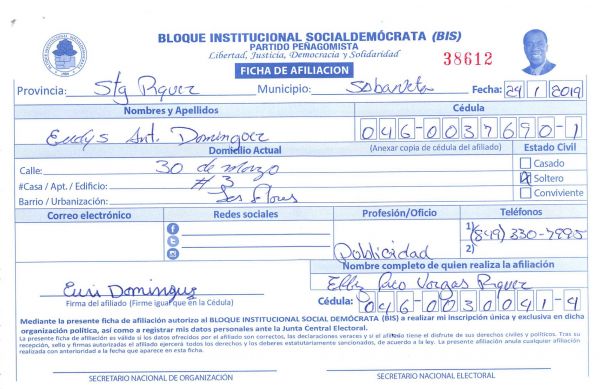 BLOQUE INSTITUCIONAL SOCIALDEMÓCRATA (BIS)
PARTIDO PEÑAGOMISTA
Libertad, Justicia, Democracia y Solidaridad
38612
FICHA DE AFILIACION
Provincia: Stg Rguez Municipio: Sabaneta Fecha: 29/1/2019
Nombres y Apellidos Cédula
Eudys Ant. Dominguez 046-0037690-1
Domicilio Actual (Anexar copia de cédula del afiliado) Estado Civil
Calle: 30 de Marzo Casado
#Casa / Apt. / Edificio: #3 Soltero
Barrio / Urbanización: Las Flores Conviviente
Correo electrónico Redes sociales Profesión/Oficio Teléfonos
1) (849) 330-7995
2)
Publicidad
Nombre completo de quien realiza la afiliación
Vargas Rguez
Dominguez
Firma del afiliado (Firme igual que en la Cédula) Cédula: 046-0030041-4
Mediante la presente ficha de afiliación autorizo al BLOQUE INSTITUCIONAL SOCIAL DEMÓCRATA (BIS) a realizar mi inscripción única y exclusiva en dicha
organización política, así como a registrar mis datos personales ante la Junta Central Electoral.
La presente ficha de afiliación es válida si los datos ofrecidos por el afiliado son correctos, las declaraciones veraces y si el afiliado tiene el disfrute de sus derechos civiles y políticos. Tras su
recepción, sello y firmas autorizadas el afiliado ejercerá todos los derechos y los deberes estatutariamente sancionados, de acuerdo a la ley. La presente afiliación anula cualquier afiliación
realizada con anterioridad a la fecha que aparece en esta ficha.
SECRETARIO NACIONAL DE ORGANIZACIÓN SECRETARIO NACIONAL ELECTORAL